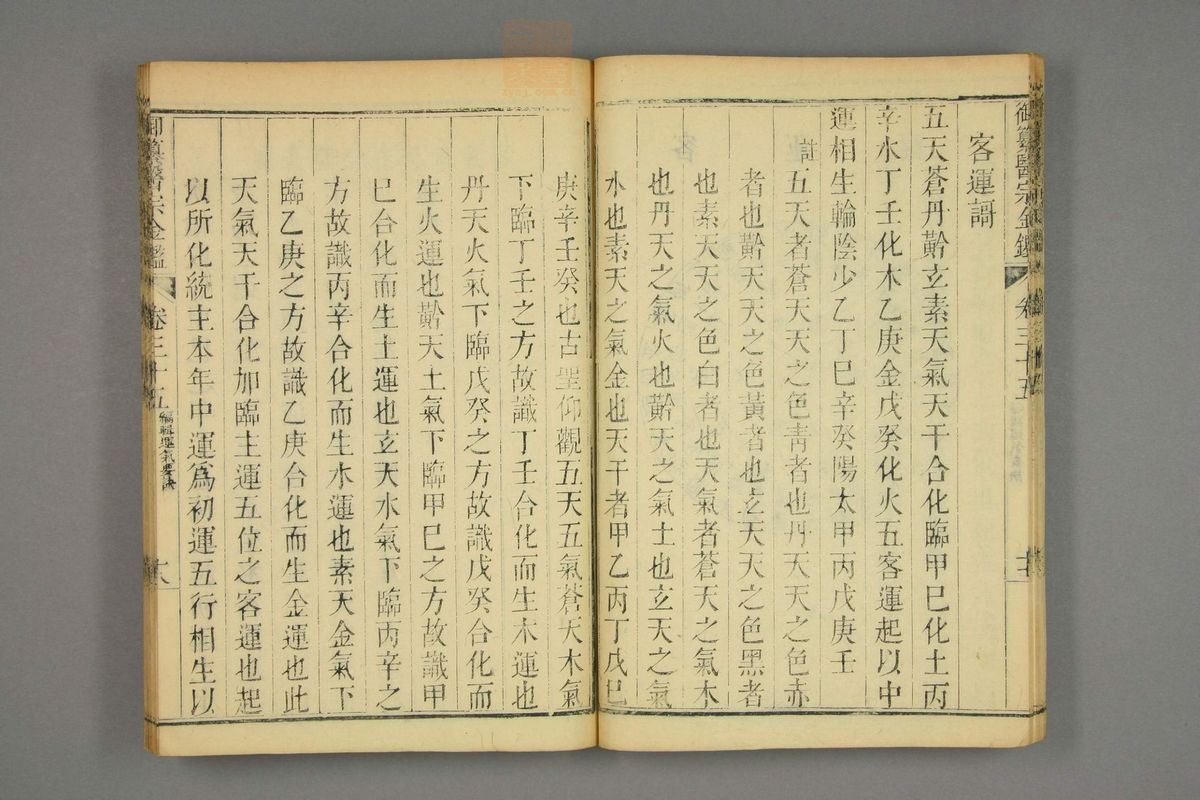 御纂醫宗金鑑 卷三十五
客運謌
五天蒼丹黅玄素天氣天干合化臨甲巳化土丙
辛水丁壬化木乙庚金戊癸化火五客運起以中
運相生輪陰少乙丁巳辛癸陽太甲丙戊庚壬
註五天者蒼天天之色靑者也丹天天之色赤
者也黅天天之色黃者也玄天天之色黑者
也素天天之色白者也天氣者蒼天之氣木
也丹天之氣火也黅天之氣土也玄天之氣
水也素天之氣金也天干者甲乙丙丁戊巳
庚辛壬癸也古聖仰觀五天五氣蒼天木氣
下臨丁壬之方故識丁壬合化而生木運也
丹天火氣下臨戊癸之方故識戊癸合化而
生火運也黅天土氣下臨甲巳之方故識甲
巳合化而生土運也玄天水氣下臨丙辛之
方故識丙辛合化而生水運也素天金氣下
臨乙庚之方故識乙庚合化而生金運也此
天氣天干合化加臨主運五位之客運也起
以所化統主本年中運爲初運五行相生以
御纂醫宗金鑑 卷三十五 編輯運氣要訣